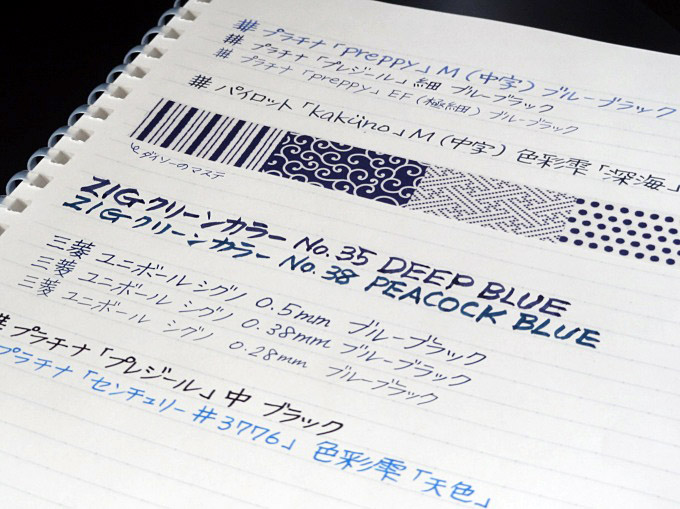 # プラチナ「preppy」M(中字)ブルーブラック
# プラチナ「プレジール」細 ブルーブラック
# プラチナ「preppy」EF(極細)ブルーブラック
# パイロット「kaküno」M(中字)色彩雫「深海」
ダイソーのマステ
ZIGクリーンカラー No.35 DEEP BLUE
ZIGクリーンカラー No.38 PEACOCK BLUE
三菱 ユニボールシグノ 0.5mm ブルーブラック
三菱 ユニボールシグノ 0.38mm ブルーブラック
三菱 ユニボール シグノ 0.28mm ブルーブラック
# プラチナ「プレジール」中 ブラック
プラチナ「センチュリー#3776」色彩雫「天色」